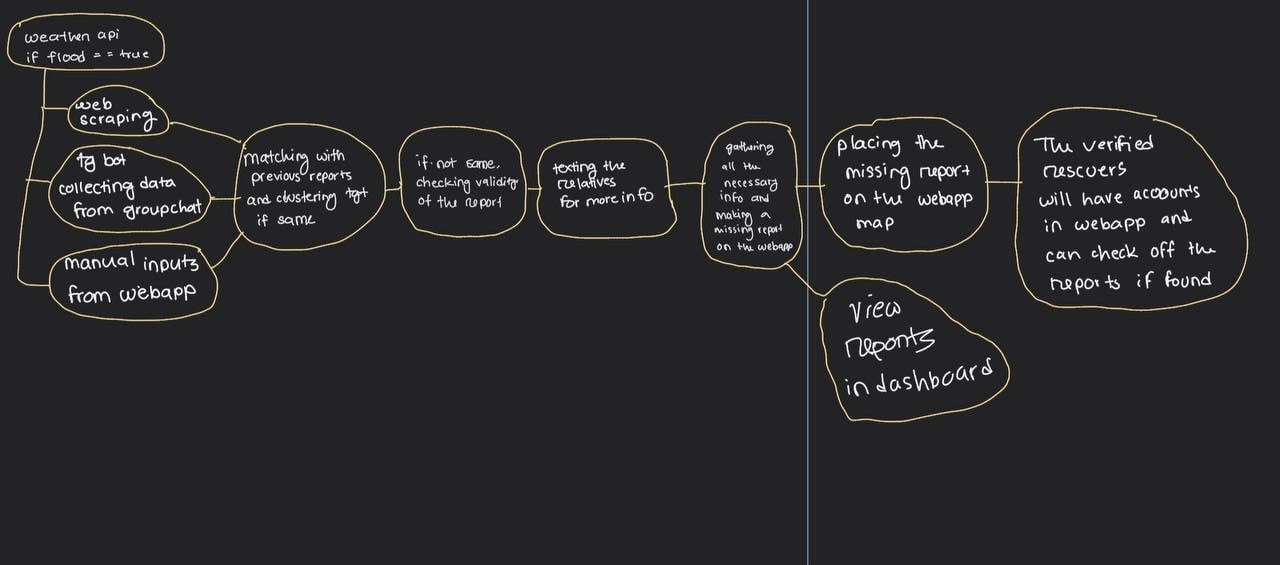 weather api
if flood == true
web
scraping
tg bot
collecting data
from groupchat
manual inputs
from webapp
matching with
previous reports
and clustering tgt
if same
if not same,
checking validity
of the report
texting the
relatives
for more info
gathering
all the
necessary
info and
making a
missing report
on the webapp
placing the
missing report
on the webapp
map
view
reports
in dashboard
The verified
rescuers
will have accounts
in webapp and
can check off the
reports if found